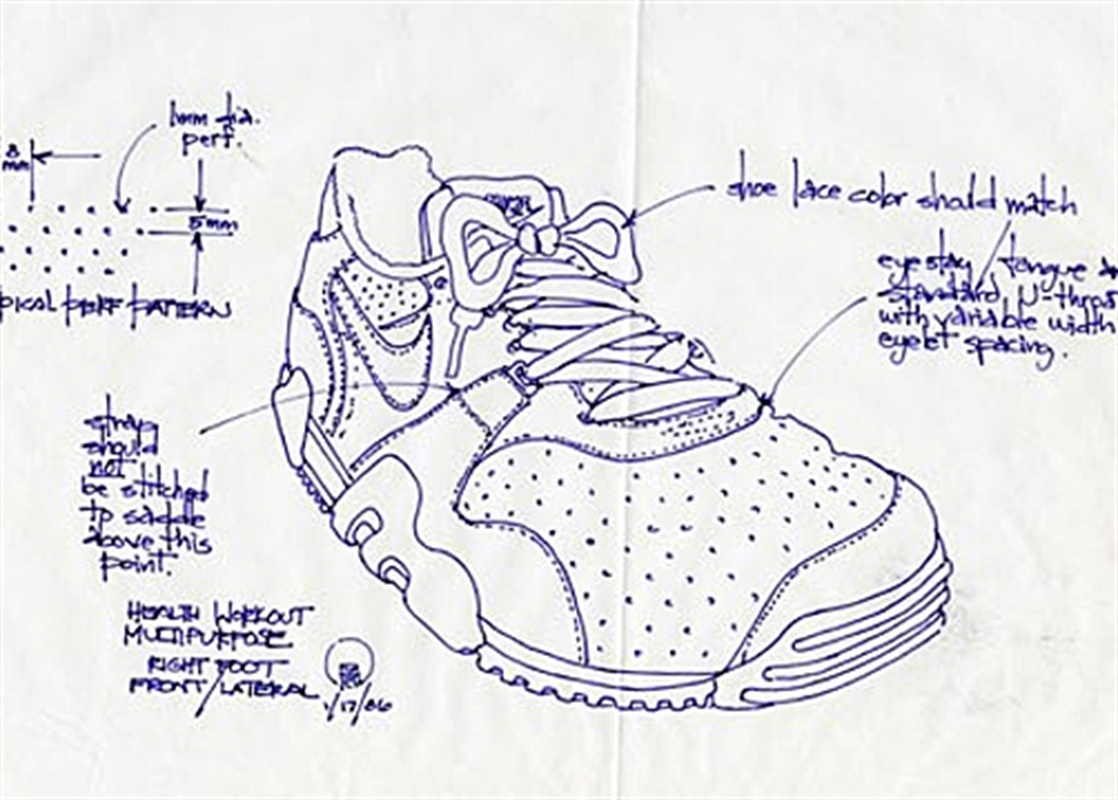 1mm dia.
perf.
8
mm
5mm
PICAL PERF PATTERN
shoe lace color should match
eyestay / tongue
standard U-throat
with variable width
eyelet spacing.
strap
should
not
be stitched
to saddle
above this
point.
HEALTH WORKOUT
MULTIPURPOSE
RIGHT FOOT
FRONT/LATERAL
1/17/86